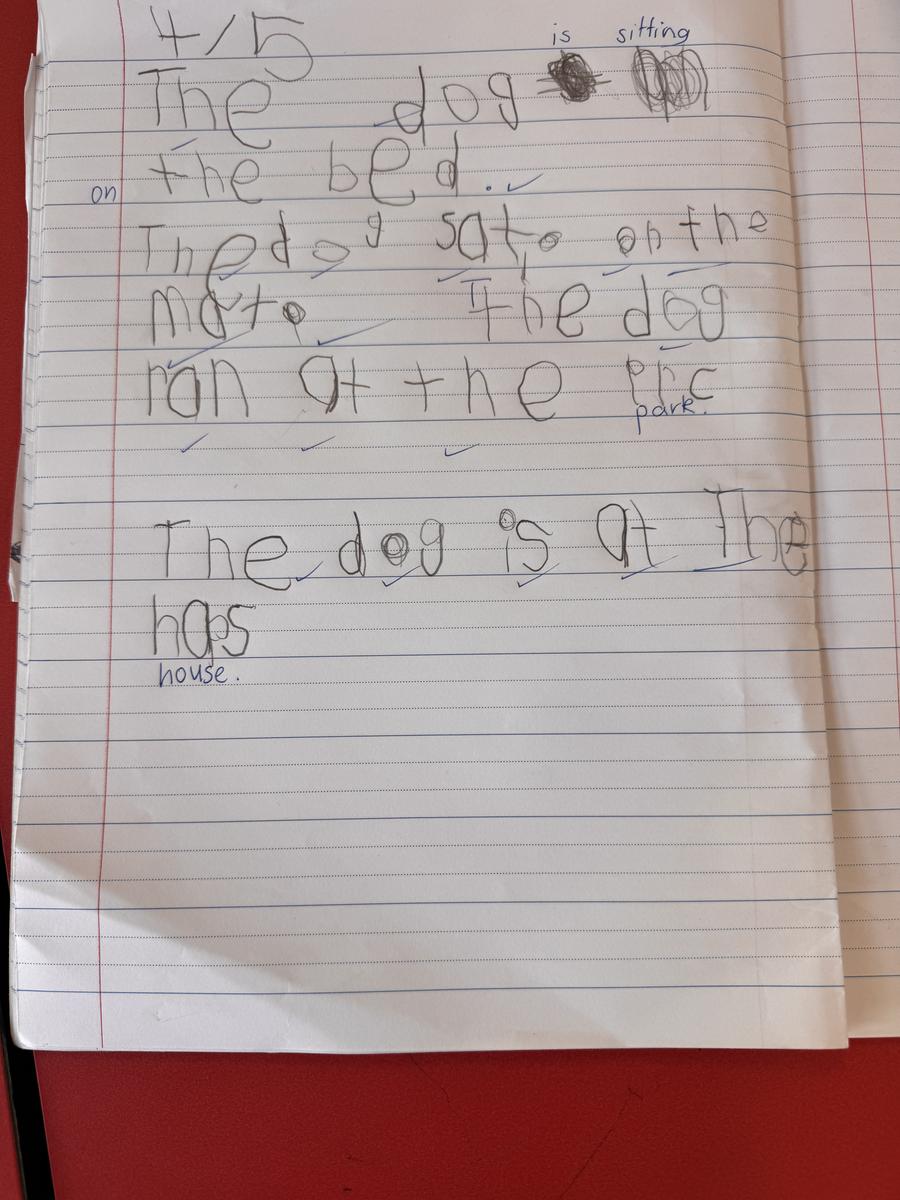 4/5
is sitting
The dog
on the bed.
The dog sat. on the
mat. The dog
ran at the prc
park.
The dog is at The
haos
house.